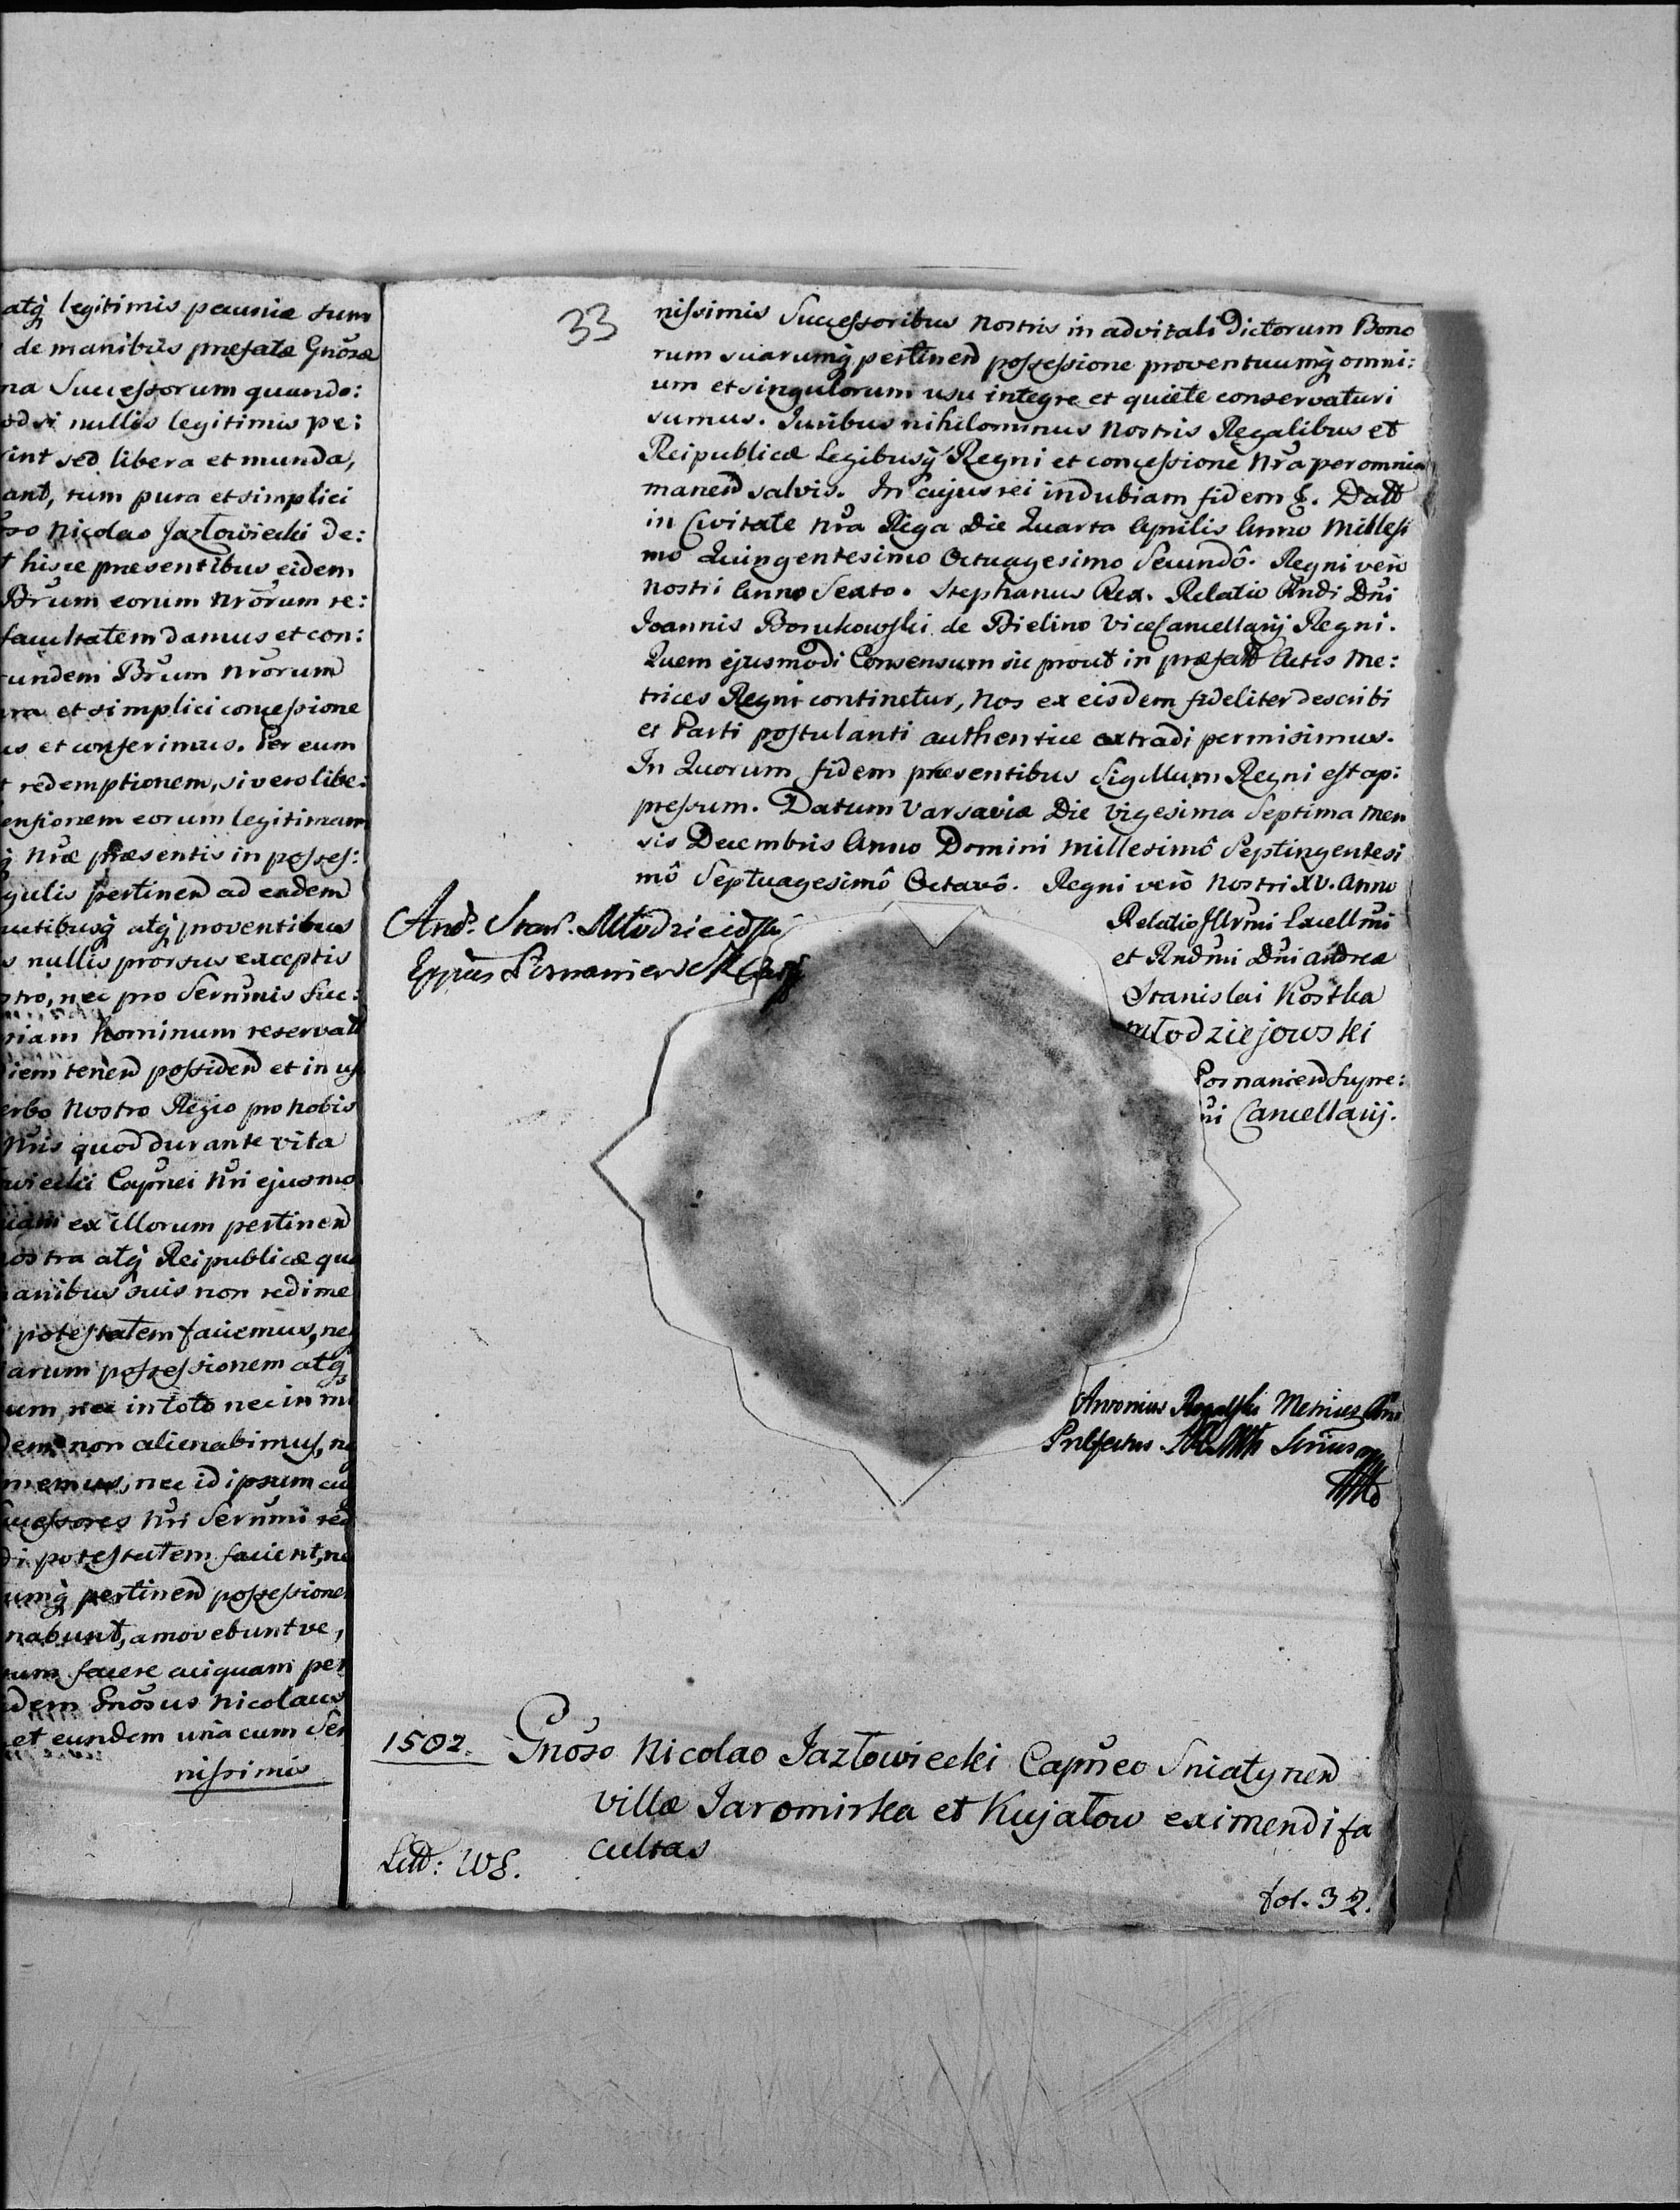 atq̃ legitimis pecuniæ sum
de manibus præfatæ Gnõsæ
na Successorum quando:
od si nullis legitimis pe:
int sed libera et munda,
ant, tum pura et simplici
so Nicolao Jazłowiecki de:
t hisce præsentibus eidem
Brum eorum nrõrum re:
facultatem damus et con:
undem Brum nrõrum
ura et simplici concessione
us et conferimus. Per eum
t redemptionem, si vero libe:
ensionem eorum legitimam
q̃ nræ præsentis in posses:
gulis pertinen ad eadem
utibusq̃ atq̃ proventibus
s nullis prorsus exceptis
stro, nec pro Serñmis Suc:
niam hominum reservatt
diem tenen possiden et in us
erbo Nostro Regio pro Nobis
Nris quod durante vita
wiecki Capñei Nri ejusmo
uam ex illorum pertinen
ostra atq̃ Reipublicæ qua
anibus suis non redime
potestatem faciemus, neq̃
arum possessionem atq̃
um, nec in toto nec in mi
dem non alienabimus, ne
memus, nec id ipsum cui
uccessores Nri Serñmi red
di potestatem facient, ne
umq̃ pertinen possessionem
nabunt, amovebunt ve,
sum facere cuiquam per
idem Gnõsus Nicolaus
et eundem una cum Ser
nissimis
33
nissimis Successoribus Nostris in advitali dictorum Bono
rum suarumq̃ pertinen possessione proventuumq̃ omni:
um et singulorum usu integre et quiete conservaturi
sumus. Juribus nihilominus Nostris Regalibus et
Reipublicæ Legibusq̃ Regni et concessione Nra per omnia
manen salvis. In cujus rei indubiam fidem &. Datt
in Civitate Nra Riga Die Quarta Aprilis Anno Millesi
mo Quingentesimo Octuagesimo Secundô. Regni vero
Nostri Anno Sexto. Stephanus Rex. Relatio Rndi Dni
Joannis Borukowski de Bielino ViceCancellarij Regni.
Quem ejusmodi Consensum sic prout in præfatt Actis Me:
trices Regni continetur, Nos ex eisdem fideliter describi
et Parti postulanti authentice extradi permisimus.
In Quorum fidem præsentibus Sigillum Regni est ap:
pressum. Datum Varsaviæ Die Vigesima Septima Men
sis Decembris Anno Domini Millesimô Septingentesi
mô Septuagesimô Octavô. Regni verô Nostri XV. Anno
And: Stan: Młodzieiowski
Eppus Posnaniens
Relatio Illrmi Excellmi
et Rndmi Dni Andreæ
Stanislai Kostka
Młodziejowski
Posnanien Supre:
mi Cancellarij.
Antonius Metrices
Præfectus
1582.
Gnõso Nicolao Jazłowiecki Capñeo Sniatynen
villæ Jaromirka et Kujatow eximendi fa
cultas
Litt: WS.
fol. 32.